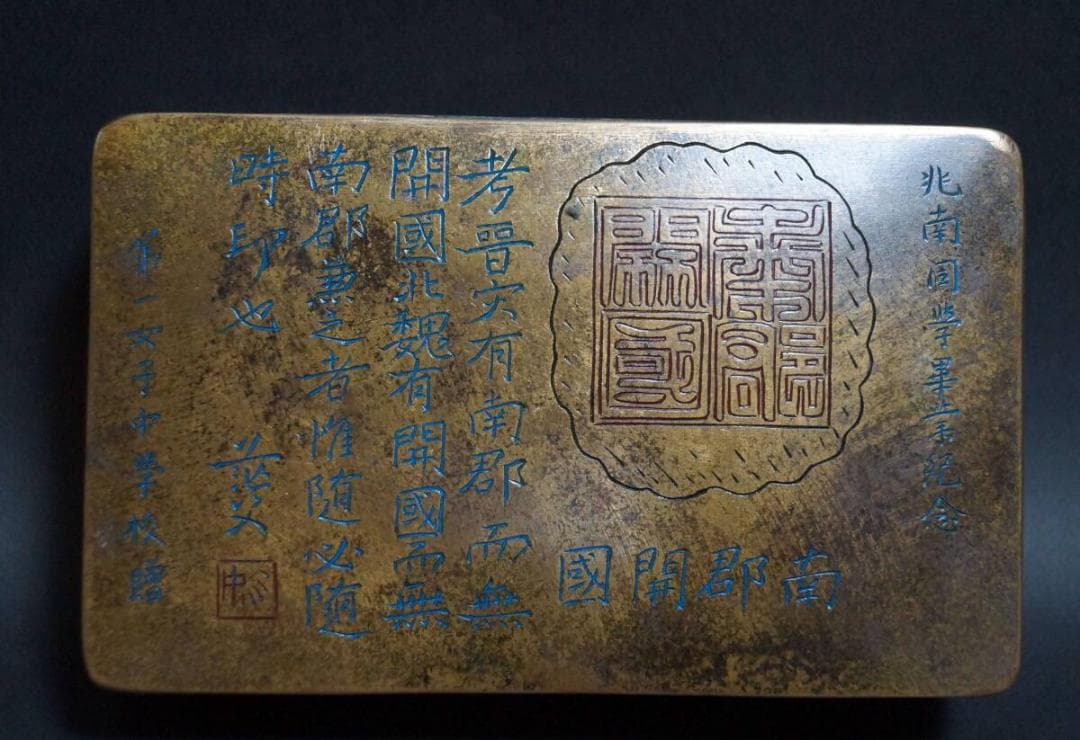 兆南同學畢業紀念
南郡開國
考晉宋有南郡而無
開國北魏有開國而無
南郡兼之者惟隨必隨
時印也
第一女子中學校贈